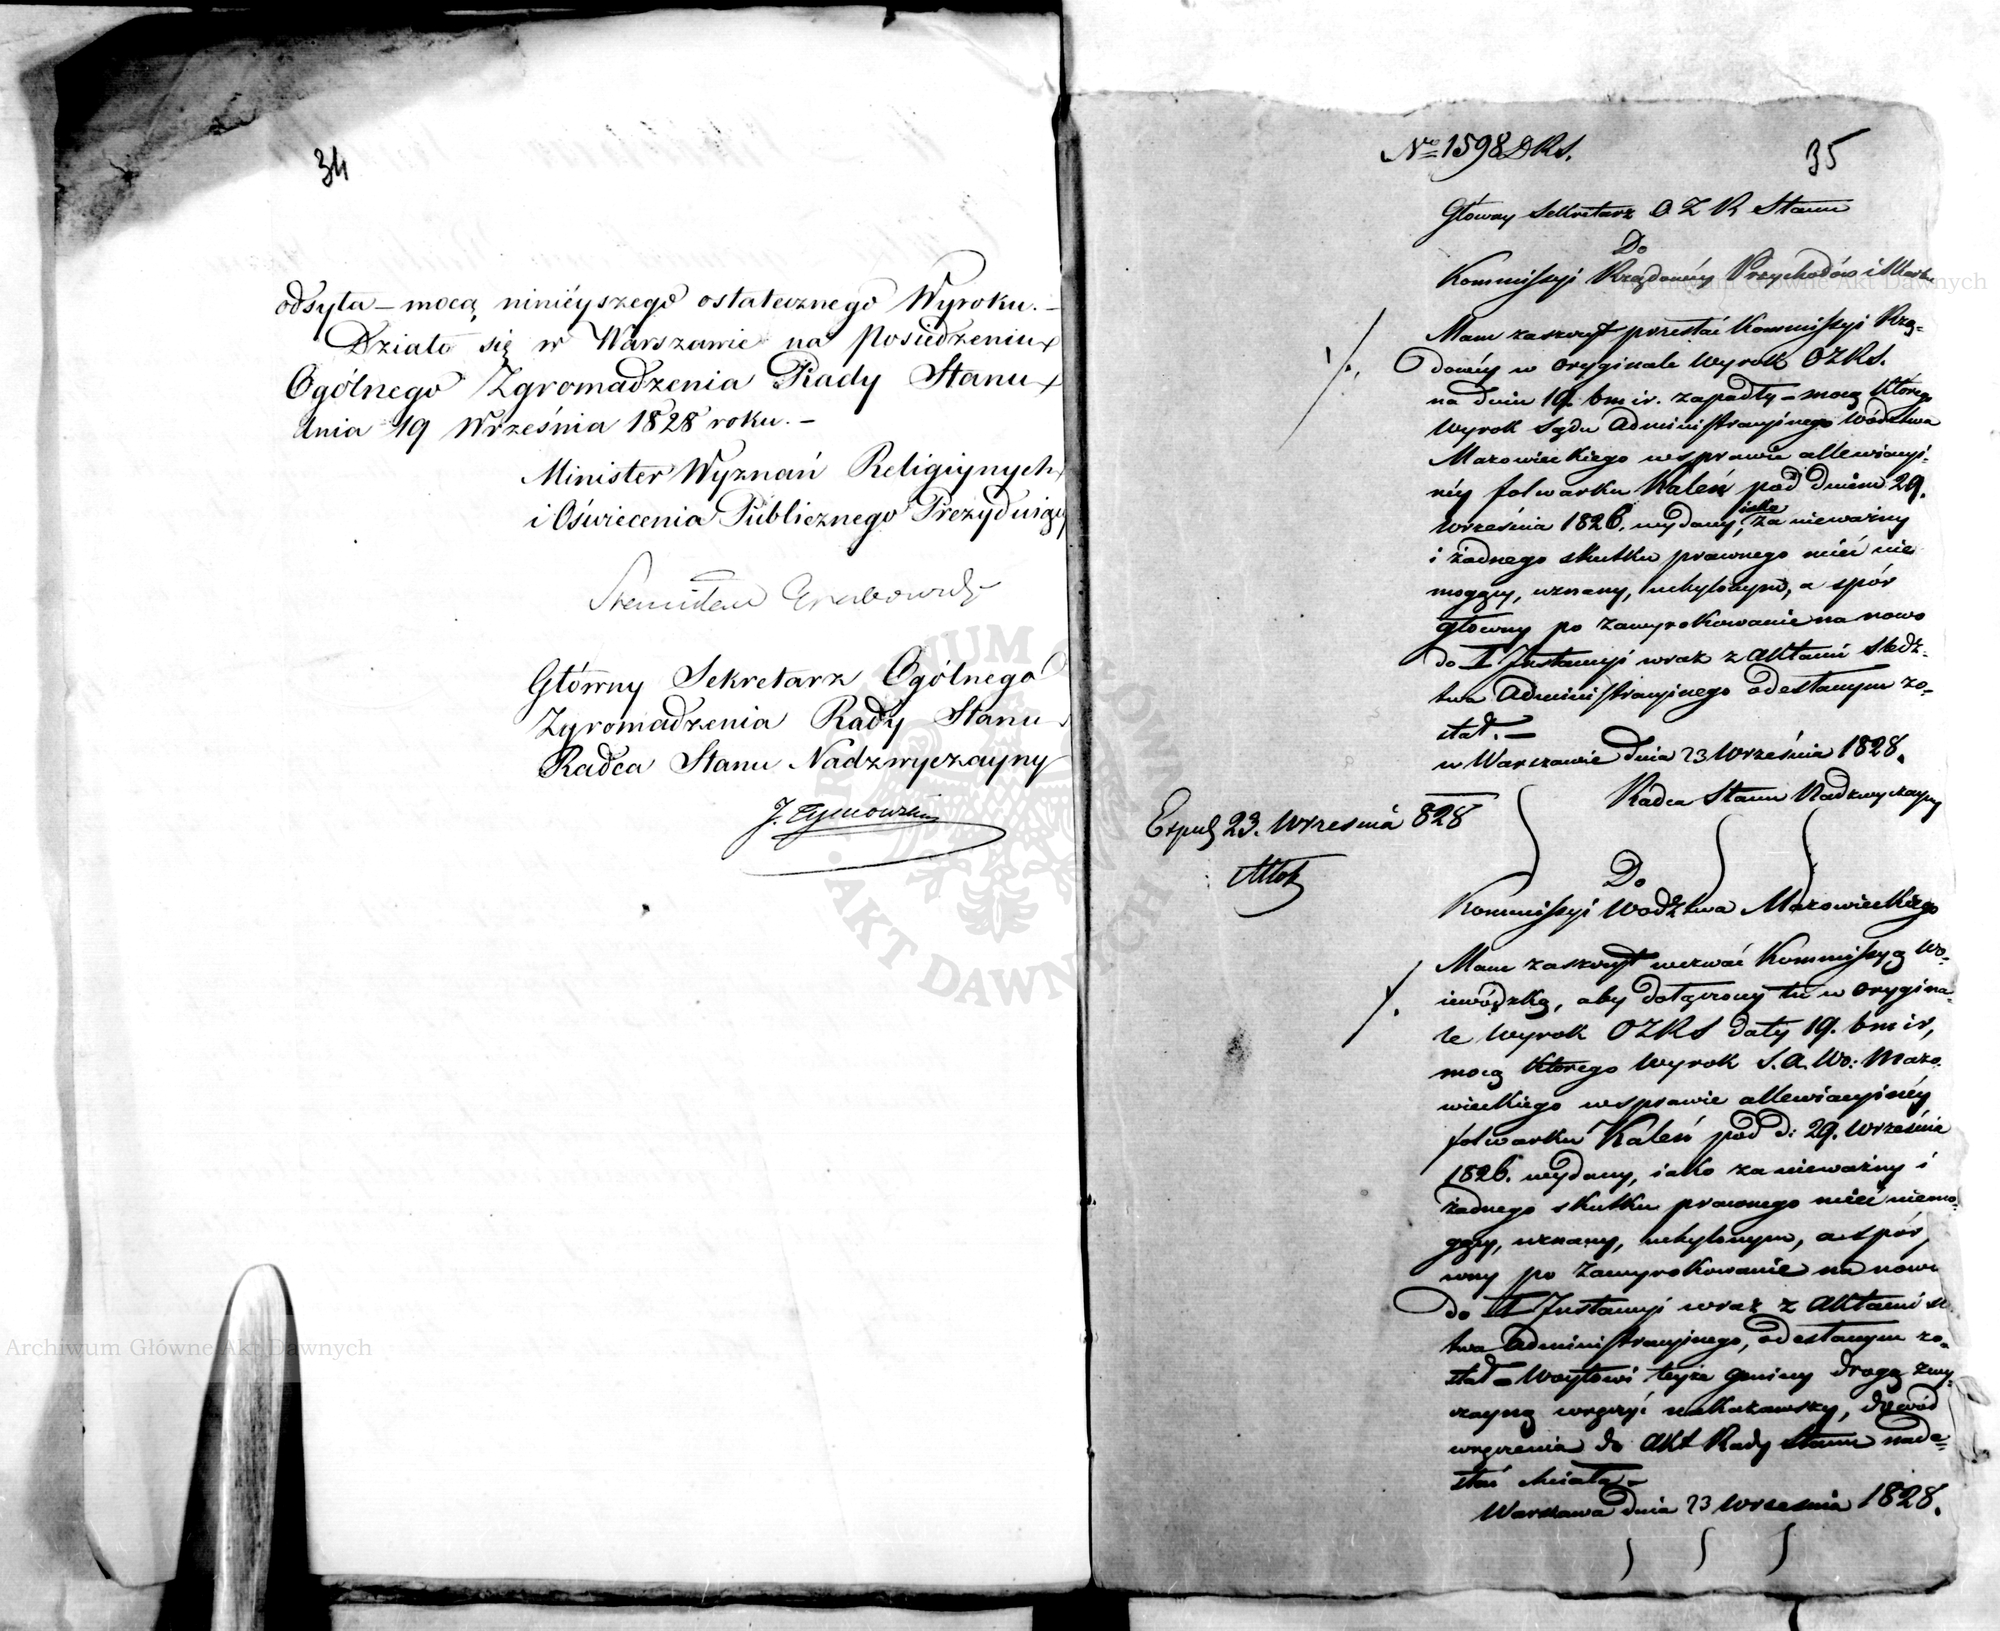 34
odsyła – mocą ninieyszego ostatecznego Wyroku. –
Działo się w Warszawie na Posiedzeniu
Ogólnego Zgromadzenia Rady Stanu
dnia 19 Września 1828 roku. –
Minister Wyznań Religiynych
i Oświecenia Publicznego Prezyduiący
Stanisław Grabowski
Główny Sekretarz Ogólnego
Zgromadzenia Rady Stanu
Radca Stanu Nadzwyczayny
J. Tymowski
No 1598 DRS.
35
Główny Sekretarz O Z R Stanu
Do
Kommissyi Rządowéy Przychodów i Skarbu
Mam zaszczyt przesłać Kommissyi Rzą-
dowéy w oryginale Wyrok OZRS.
na dniu 19. bm ir. zapadły – mocą którego
Wyrok Sądu Administracyinego Wództwa
Mazowieckiego w sprawie allewiacyi-
néy folwarku Kaleń pod dniem 29.
Września 1826. wydany, iako za nieważny
i żadnego skutku prawnego mieć nie
mogący, uznany, uchylonym, a spór
główny po zawyrokowanie na nowo
do I Instancyi wraz z Aktami śledz-
twa Administracyinego odesłanym zo-
stał. –
w Warszawie dnia 23 Września 1828.
Radca Stanu Nadzwyczayny
23. Września 828
Do
Kommissyi Wodztwa Mazowieckiego
Mam zaszczyt wezwać Kommissyą Wo-
iewódzką, aby dołączony tu w orygina-
le Wyrok OZRS daty 19. bm ir,
mocą którego Wyrok S. A. Wo: Mazo-
wieckiego w sprawie allewiacyinéy
folwarku Kaleń pod d: 29. Września
1826. wydany, iako za nieważny i
żadnego skutku prawnego mieć niemo-
gący, uznany, uchylonym, a spór
wny po zawyrokowanie na nowo
do I Instancyi wraz z Aktami
twa Administracyinego, odesłanym zo-
stał – Woytowi teyże gminy drogą zwy-
czayną wręczyć nakazawszy, dowód
wręczenia do Akt Rady Stanu nade-
słać chciała –
Warszawa dnia 23 Września 1828.
Archiwum Główne Akt Dawnych
Archiwum Główne Akt Dawnych
ARCHIWUM GŁÓWNE AKT DAWNYCH